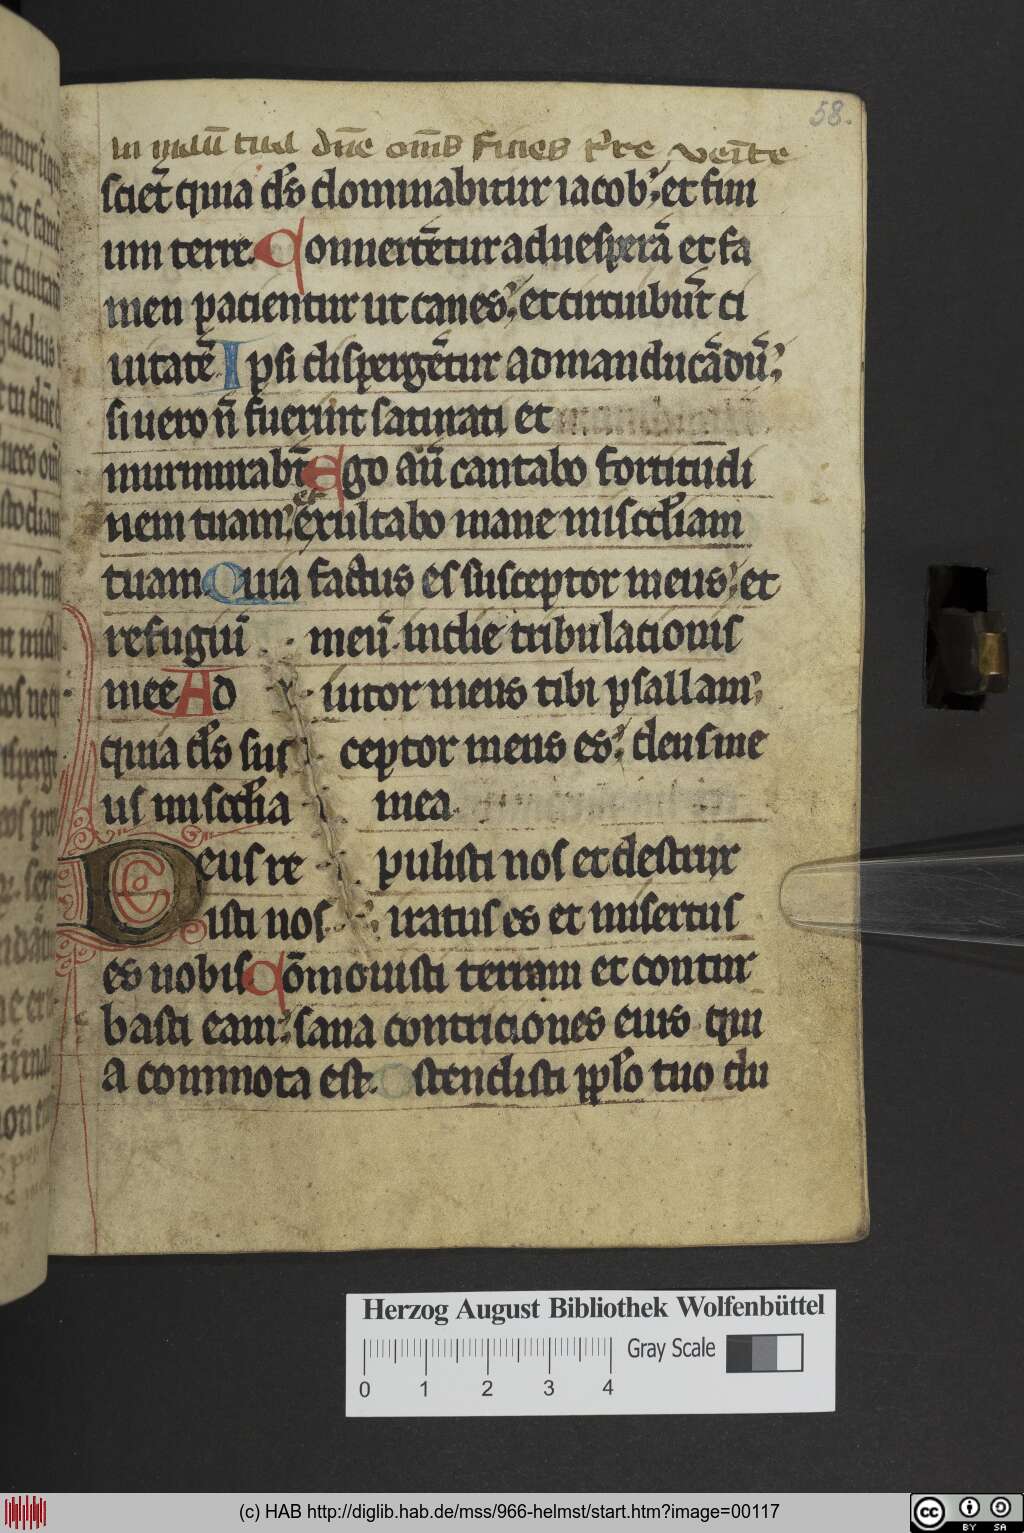 58.
sciēt quia ds̄ dominabitur iacob; et fini
um terre. Conuertētur ad uesperā et fa
men pacientur ut canes; et circuibūt ci
uitatē Ipsi dispergētur ad manducādū;
si uero n̄ fuerint saturati et
murmurabt̄ Ego aūt cantabo fortitudi
nem tuam; et exultabo mane misc̄diam
tuam Quia factus es susceptor meus; et
refugiū meū. in die tribulacionis
mee Ad iutor meus tibi psallam;
quia ds̄ sus ceptor meus es; deus me
us misc̄dia mea
Deus re pulisti nos et destrux
isti nos iratus es et misertus
es nobis Cōmouisti terram et contur
basti eam; sana contriciones eius qui
a commota est. Ostendisti pplo tuo du
Herzog August Bibliothek Wolfenbüttel
Gray Scale
0 1 2 3 4
(c) HAB http://diglib.hab.de/mss/966-helmst/start.htm?image=00117
cc BY SA